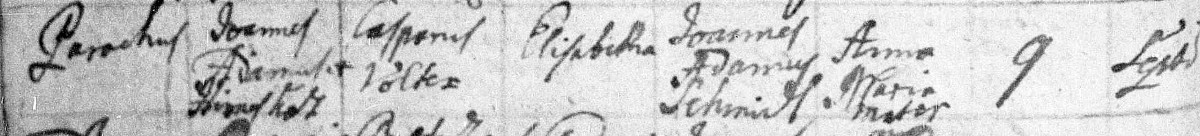 Parochus Joannes Casparus Elisabetha Joannes Anna 9
Adamus Völter Adamus Maria
Schmidt mater